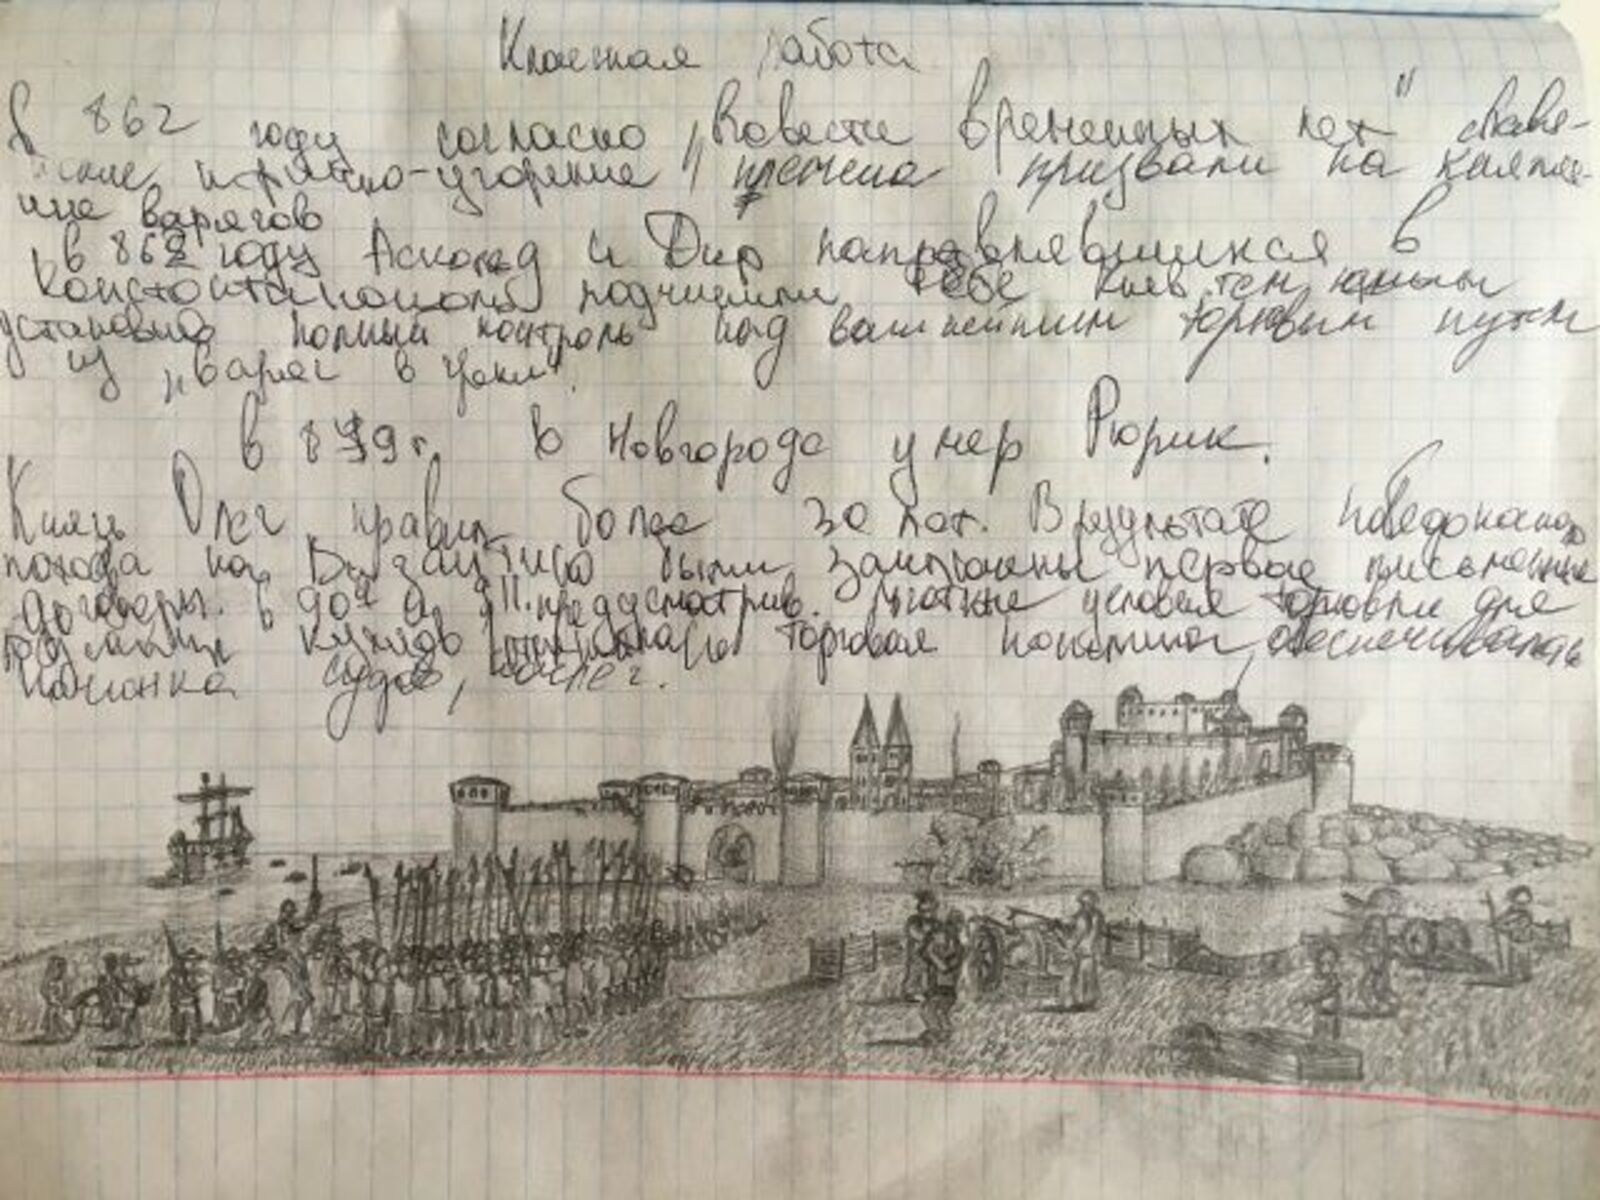 Классная работа
В 862 году согласно „Повести временных лет" славя-
нские и финно-угорские племена призвали на княже-
ние варягов
в 862 году Аскольд и Дир направлявшихся в
Константинополь подчинили себе Киев тем самым
установив полный контроль над важнейшим торговым путем
из „варяг в греки".
в 879 г. в Новгороде умер Рюрик.
Князь Олег правил более 30 лет. В результате победоносного
похода на Византию были заключены первые письменные
договоры. в 907 и 911. предусматрив. льготные условия торговли для
купцов торговая пошлина, обеспечивалась
починка судов, ночлег.